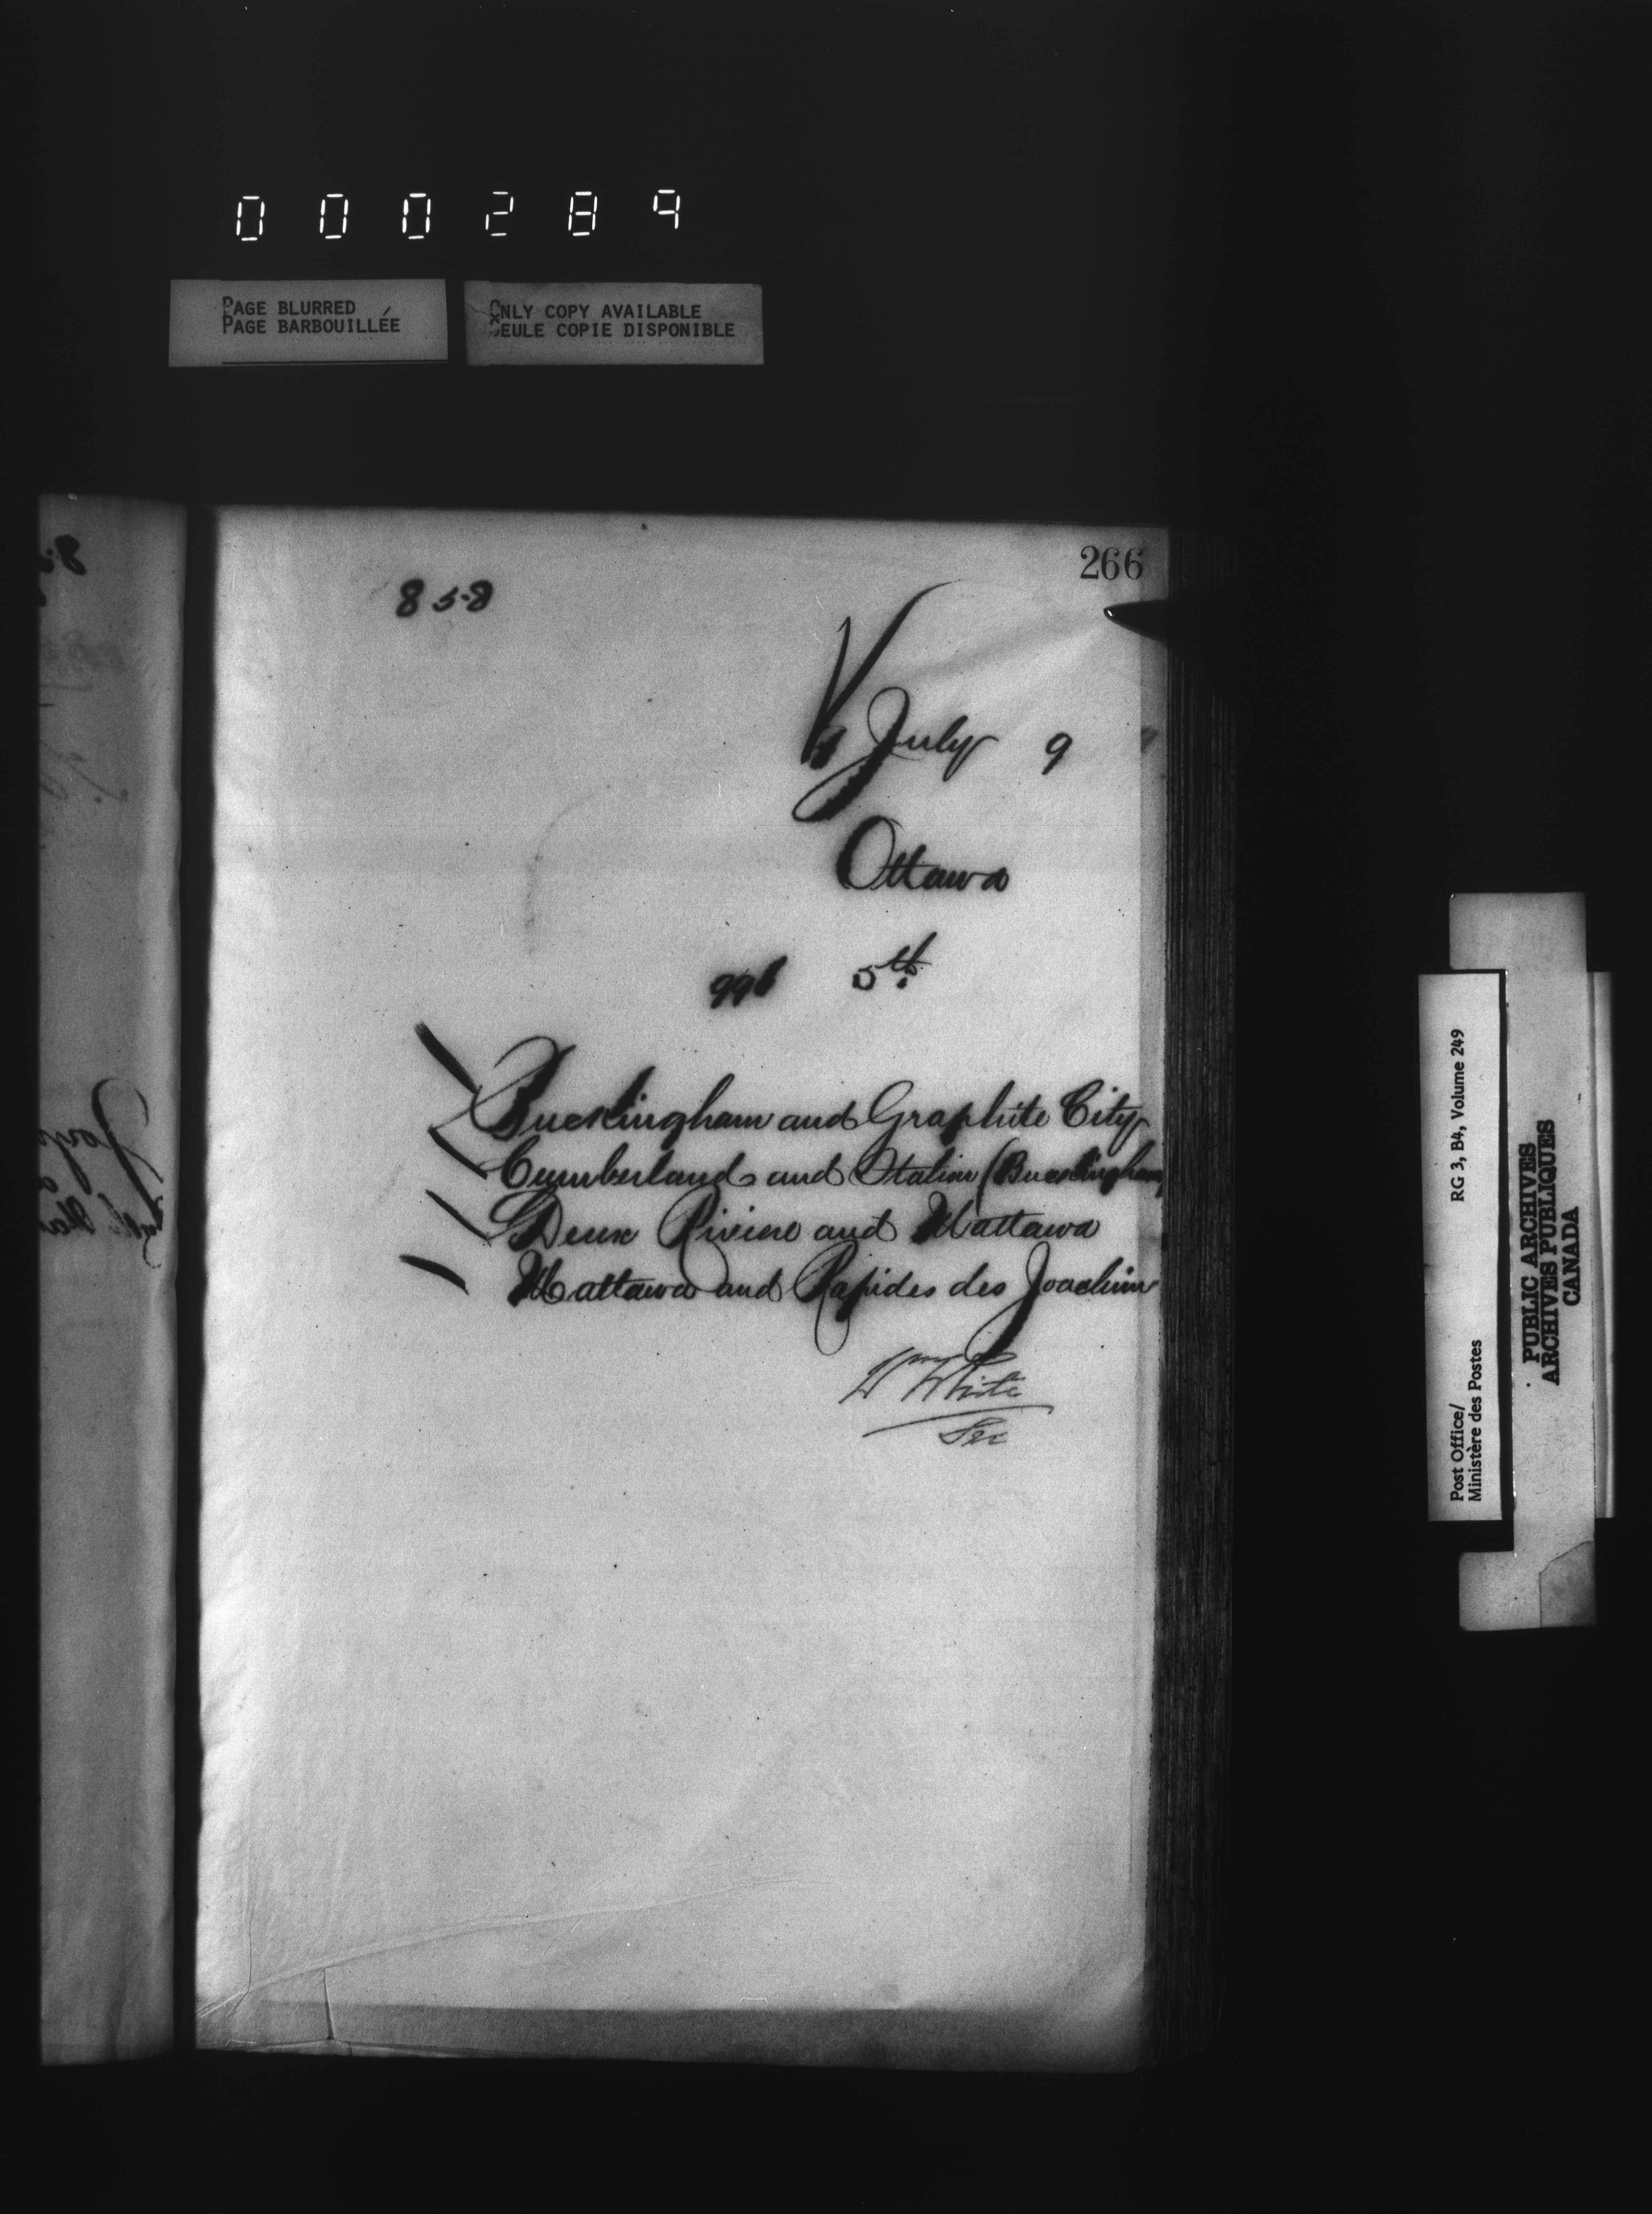 000289
PAGE BLURRED
PAGE BARBOUILLÉE
ONLY COPY AVAILABLE
SEULE COPIE DISPONIBLE
266
858
July 9
Ottawa
996 5th
Buckingham and Graphite City
Cumberland and Station (Buckingham
Deux Riviere and Mattawa
Mattawa and Rapides des Joachim
Wm White
Sec
Post Office/ RG 3, B4, Volume 249
Ministère des Postes
PUBLIC ARCHIVES
ARCHIVES PUBLIQUES
CANADA